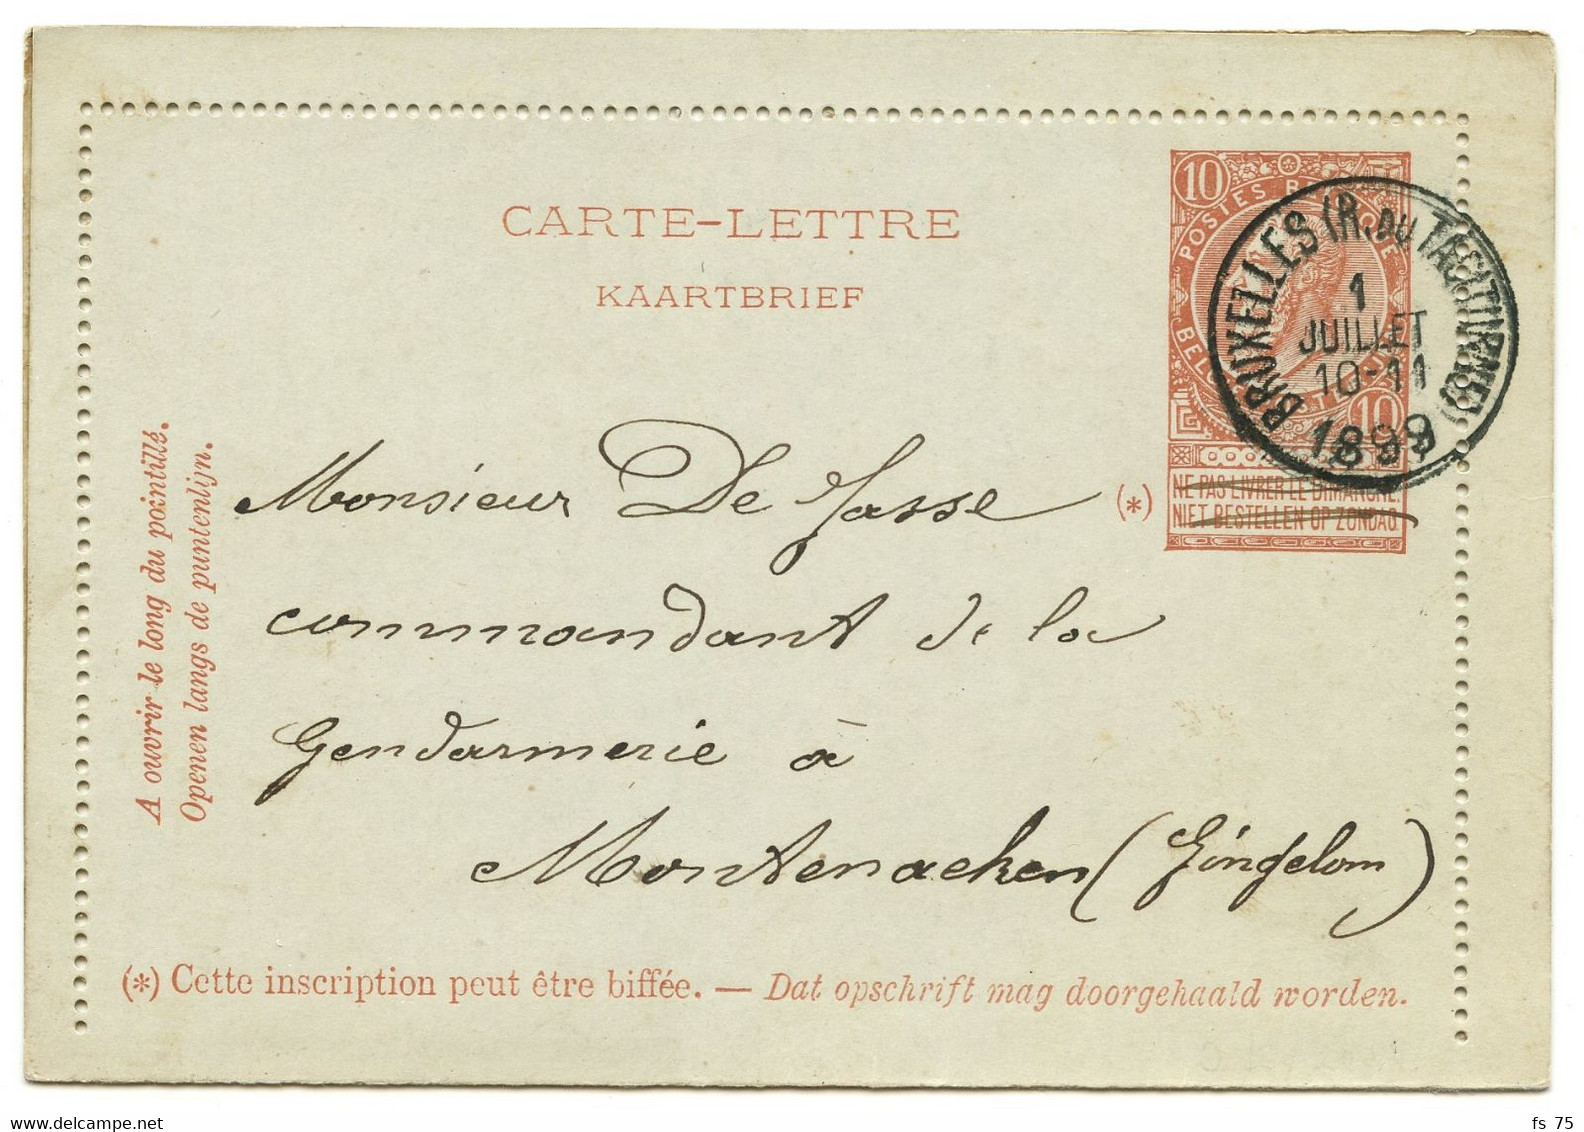 CARTE-LETTRE
KAARTBRIEF
10
POSTES BELGIQUE
BRUXELLES (R. DU TACITURNE)
1
JUILLET
10-11
1899
10
NE PAS LIVRER LE DIMANCHE.
NIET BESTELLEN OP ZONDAG.
(*)
A ouvrir le long du pointillé.
Openen langs de puntenlijn.
Monsieur De Jasse
commandant de la
Gendarmerie à
Montenacken (Gingelom)
(*) Cette inscription peut être biffée. — Dat opschrift mag doorgehaald worden.
fs 75